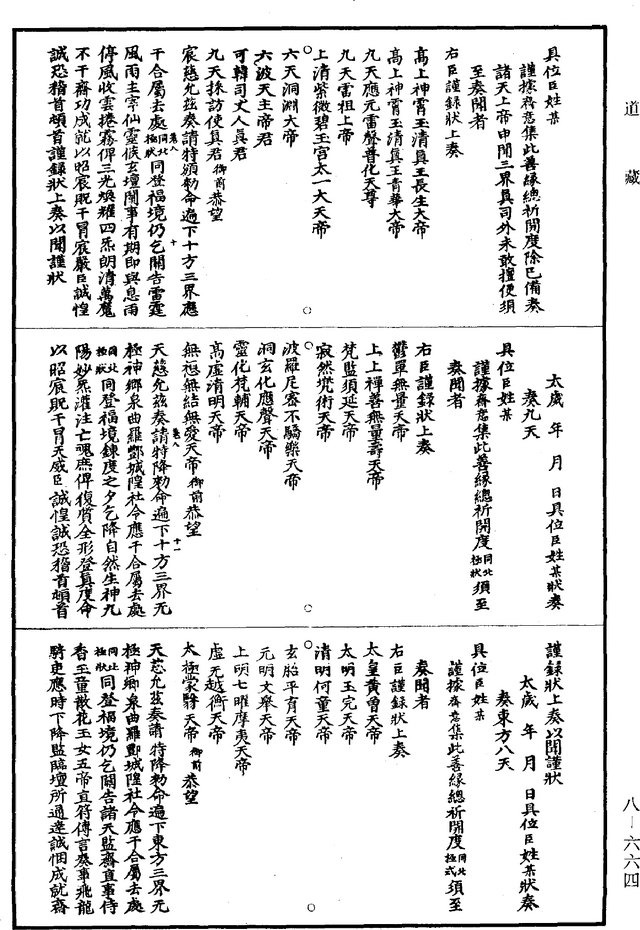 道藏
具位臣姓某
謹據齋意集此善緣總祈開度除已備奏
諸天上帝申聞三界真司外未敢擅便須
至奏聞者
右臣謹錄狀上奏
高上神霄玉清真王長生大帝
高上神霄玉清真王青華大帝
九天應元雷聲普化天尊
九天雷祖上帝
上清紫微碧玉宮太一大天帝
六天洞淵大帝
六波天主帝君
可韓司丈人真君
九天採訪使真君御前恭望
宸慈允茲奏請特頒勑命遍下十方三界應
干合屬去處同北極狀同登福境仍乞開告雷霆
卷八 十
風雨主宰仙靈俟玄壇閙事有期即與息雨
停風收雲捲霧俾三光煥耀四炁朗清萬魔
不干齋功成就以昭宸貺干冒宸嚴臣誠惶
誠恐稽首頓首謹錄狀上奏以聞謹狀
太歲 年 月 日具位臣姓某狀奏
奏九天
具位臣姓某
謹據齋意集此善緣總祈開度同北極狀須至
奏聞者
右臣謹錄狀上奏
鬱單無量天帝
上上禪善無量壽天帝
梵監須延天帝
寂然兠術天帝
波羅尼密不驕樂天帝
洞玄化應聲天帝
靈化梵輔天帝
高虛清明天帝
無想無結無愛天帝御前恭望
天慈允茲奏請特降勑命遍下十方三界无
卷八 十一
極神鄉泉曲羅酆城隍社令應干合屬去處
同北極狀同登福境鍊度之夕乞降自然生神九
陽妙炁灌注亡魂庶俾復質全形登真度命
以昭宸貺干冒天威臣誠惶誠恐稽首頓首
謹錄狀上奏以聞謹狀
太歲 年 月 日具位臣姓某狀奏
奏東方八天
具位臣姓某
謹據齋意集此善緣總祈開度同北極式須至
奏聞者
右臣謹錄狀上奏
太皇黃曾天帝
太明玉完天帝
清明何童天帝
玄胎平育天帝
元明文舉天帝
上明七曜摩夷天帝
虛无越衡天帝
太極濛翳天帝御前恭望
天慈允茲奏請特降勑命遍下東方三界无
極神鄉泉曲羅酆城隍社令應干合屬去處
同北極狀同登福境仍乞關告諸天監齋直事侍
香玉童散花玉女五帝直符傳言奏事飛龍
騎吏應時下降監臨壇所通達誠悃成就齋
八—六六四